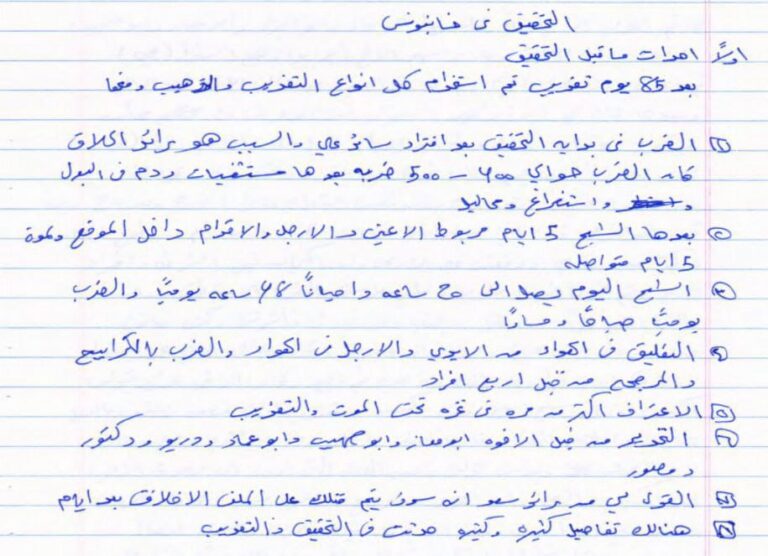 التحقيق في خانيونس
اولاً احداث ما قبل التحقيق
بعد 85 يوم تعذيب تم استخدام كل انواع التعذيب والترهيب ومنها
① الضرب في بدايه التحقيق بعد افتراد سائد علي والسبب هو برائد الحلاق
كان الضرب حوالي ٤٠٠ - ٥٠٠ ضربه بعدها مستشفيات ودم في البول
واستفراغ ومحاليل
② بعدها الشبح 5 ايام مربوط الاعين والارجل والاقدام داخل الموقع ولمدة
5 ايام متواصله
③ الشبح اليوم يصل الى ٢٠ ساعه واحياناً ساعه يومياً والضرب
يومياً صباحاً ومساءً
④ التعليق في الهواء من الايدي والارجل في الهواء والضرب بالكرابيج
والمرجحه من قبل اربع افراد
⑤ الاعتراف اكثر من مره في غزه تحت الموت والتعذيب
⑥ من قبل الاخوه ابو معاذ وابو صهيب وابو عماد ودكتور
ومصور
⑦ لي من برائد سعد انه سوف يتم قتلك على الملف الاخلاقي بعد ايام
⑧ هنالك تفاصيل كثيره وكثيره حدثت في التحقيق والتعذيب